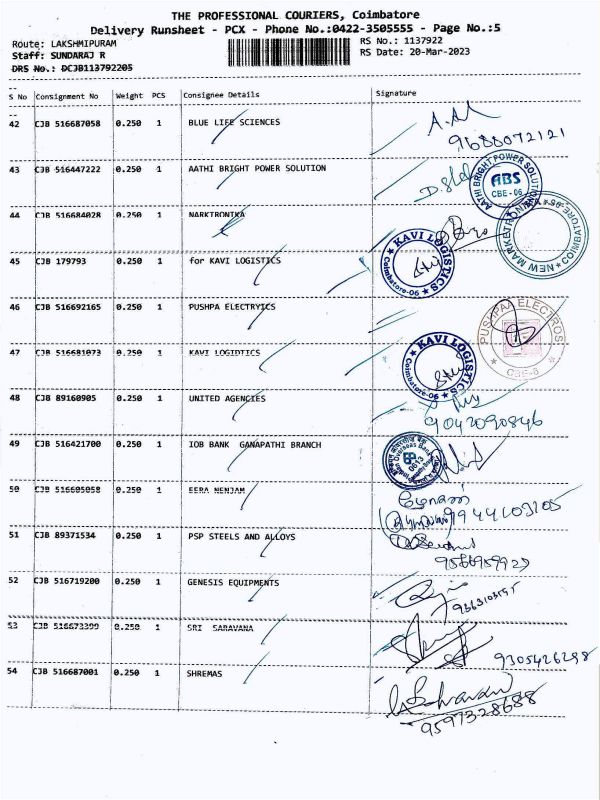 THE PROFESSIONAL COURIERS, Coimbatore
Delivery Runsheet - PCX - Phone No.:0422-3505555 - Page No.:5
Route: LAKSHMIPURAM RS No.: 1137922
Staff: SUNDARAJ R RS Date: 20-Mar-2023
DRS No.: DCJB113792205
S No Consignment No Weight PCS Consignee Details Signature
42 CJB 516687058 0.250 1 BLUE LIFE SCIENCES
9688072121
43 CJB 516447222 0.250 1 AATHI BRIGHT POWER SOLUTION
AATHI BRIGHT POWER SOLUTION
ABS
CBE - 06
44 CJB 516684028 0.250 1 NARKTRONIKA
NEW MARKETRONIKA COIMBATORE-06
45 CJB 179793 0.250 1 for KAVI LOGISTICS
KAVI LOGISTICS
Coimbatore-06
46 CJB 516692165 0.250 1 PUSHPA ELECTRYICS
PUSHPAA ELECTROS
CBE-6
47 CJB 516681073 0.250 1 KAVI LOGIDTICS
KAVI LOGISTICS
Coimbatore-06
48 CJB 89160905 0.250 1 UNITED AGENCIES
9042090846
49 CJB 516421700 0.250 1 IOB BANK GANAPATHI BRANCH
0613
50 CJB 516605058 0.250 1 EERA NENJAM
9944603105
51 CJB 89371534 0.250 1 PSP STEELS AND ALLOYS
9566959927
52 CJB 516719200 0.250 1 GENESIS EQUIPMENTS
53 CJB 516673399 0.250 1 SRI SARAVANA
9305426298
54 CJB 516687001 0.250 1 SHREMAS
9597328688